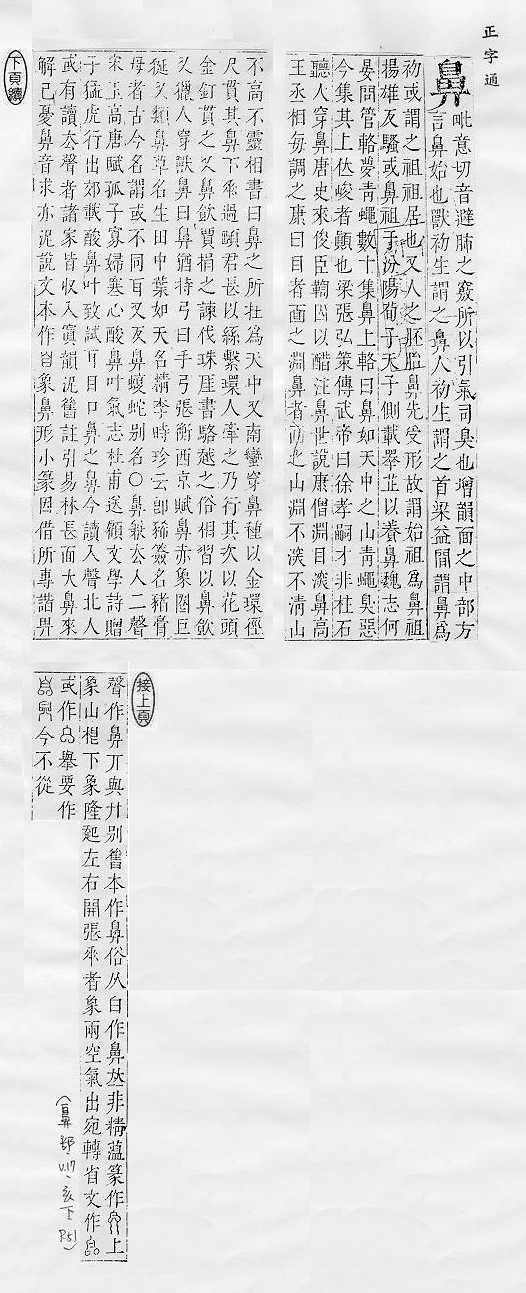 正字通
鼻
毗意切音避肺之竅所以引氣司臭也增韻面之中部方
言鼻始也獸初生謂之鼻人初生謂之首梁益閒謂鼻爲
初或謂之祖祖居也又人之胚胎鼻先受形故謂始祖爲鼻祖
揚雄反騷或鼻祖于汾陽荀子天子側載睪芷以養鼻魏志何
晏問管輅夢靑蠅數十集鼻上輅曰鼻如天中之山靑蠅臭惡
今集其上位峻者顚也梁張弘策傳武帝曰徐孝嗣才非柱石
聽人穿鼻唐史來俊臣鞫囚以醋注鼻世說康僧淵目深鼻高
王丞相每調之康曰目者面之淵鼻者面之山淵不深不淸山
不高不靈相書曰鼻之所柱爲天中又南蠻穿鼻種以金環徑
尺貫其鼻下垂過頤君長以絲繫環人牽之乃行其次以花頭
金釘貫之又鼻飮賈捐之諫伐珠厓書駱越之俗相習以鼻飮
又獵人穿獸鼻曰鼻猶持弓曰手弓張衡西京賦鼻赤象圈巨
狿又類鼻草名生田中葉如天名精李時珍云卽豨簽名豬膏
母者古今名謂或不同耳又反鼻蝮蛇別名○鼻韻厺人二聲
宋玉高唐賦孤子寡婦寒心酸鼻叶氣志杜甫送顧文學詩贈
子猛虎行出郊載酸鼻叶致試耳目口鼻之鼻今讀入聲北人
或有讀厺聲者諸家皆收入寘韻泥舊註引易林長面大鼻來
解已憂鼻音求亦泥說文本作自象鼻形小篆因借所專諧畀
下頁續
接上頁
聲作鼻丌與廾別舊本作鼻俗从白作鼻𠀤非精薀篆作 上
象山根下象隆起左右開張垂者象兩空氣出宛轉省文作
或作 舉要作
今不從
(鼻部、V.17、亥下 P.51)